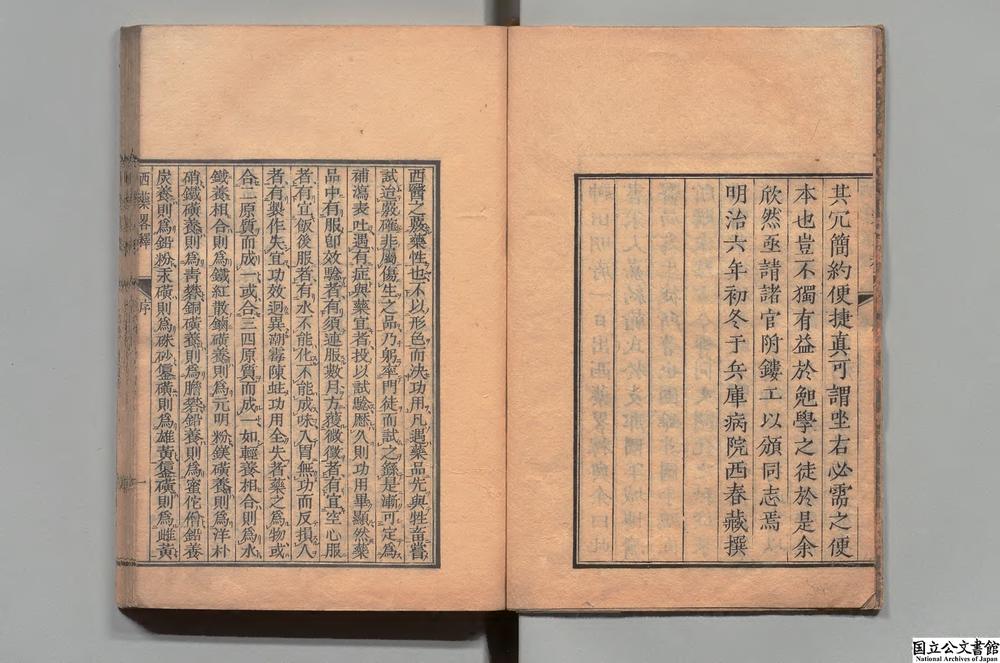 其冗簡約便捷真可謂坐右必需之便
本也豈不獨有益於勉學之徒於是余
欣然亟請諸官附鏤工以頒同志焉
明治六年初冬于兵庫病院西春蔵撰
西醫之驗藥性也不以形色而决功用凡遇藥品先與牲畜嘗
試迨驗確非屬傷生之品乃躬率門徒而試之繇是漸可定為
補瀉表吐遇有症與藥宜者投以試驗歷久則功用畢顯然藥
品中有服卽效驗者有須連服數月方獲微徵者有宜空心服
者有宜飯後服者有水不能化不能成味入胃無功而反損人
者有製作失宜功效迥異潮霉陳蛀功用全失者藥之為物或
合二原質而成一或合三四原質而成一如輕養相合則為水
鐵養相合則為鐵紅散鏀磺養則為元明粉鎂磺養則為洋朴
硝鐵磺養則為青礬銅磺養則為膽礬鉛養則為蜜佗僧鉛養
炭養則為鉛粉汞磺則為硃砂𨥙磺則為雄黃𨥙磺則為雌黃
西藥畧釋
序
一
国立公文書館
National Archives of Japan